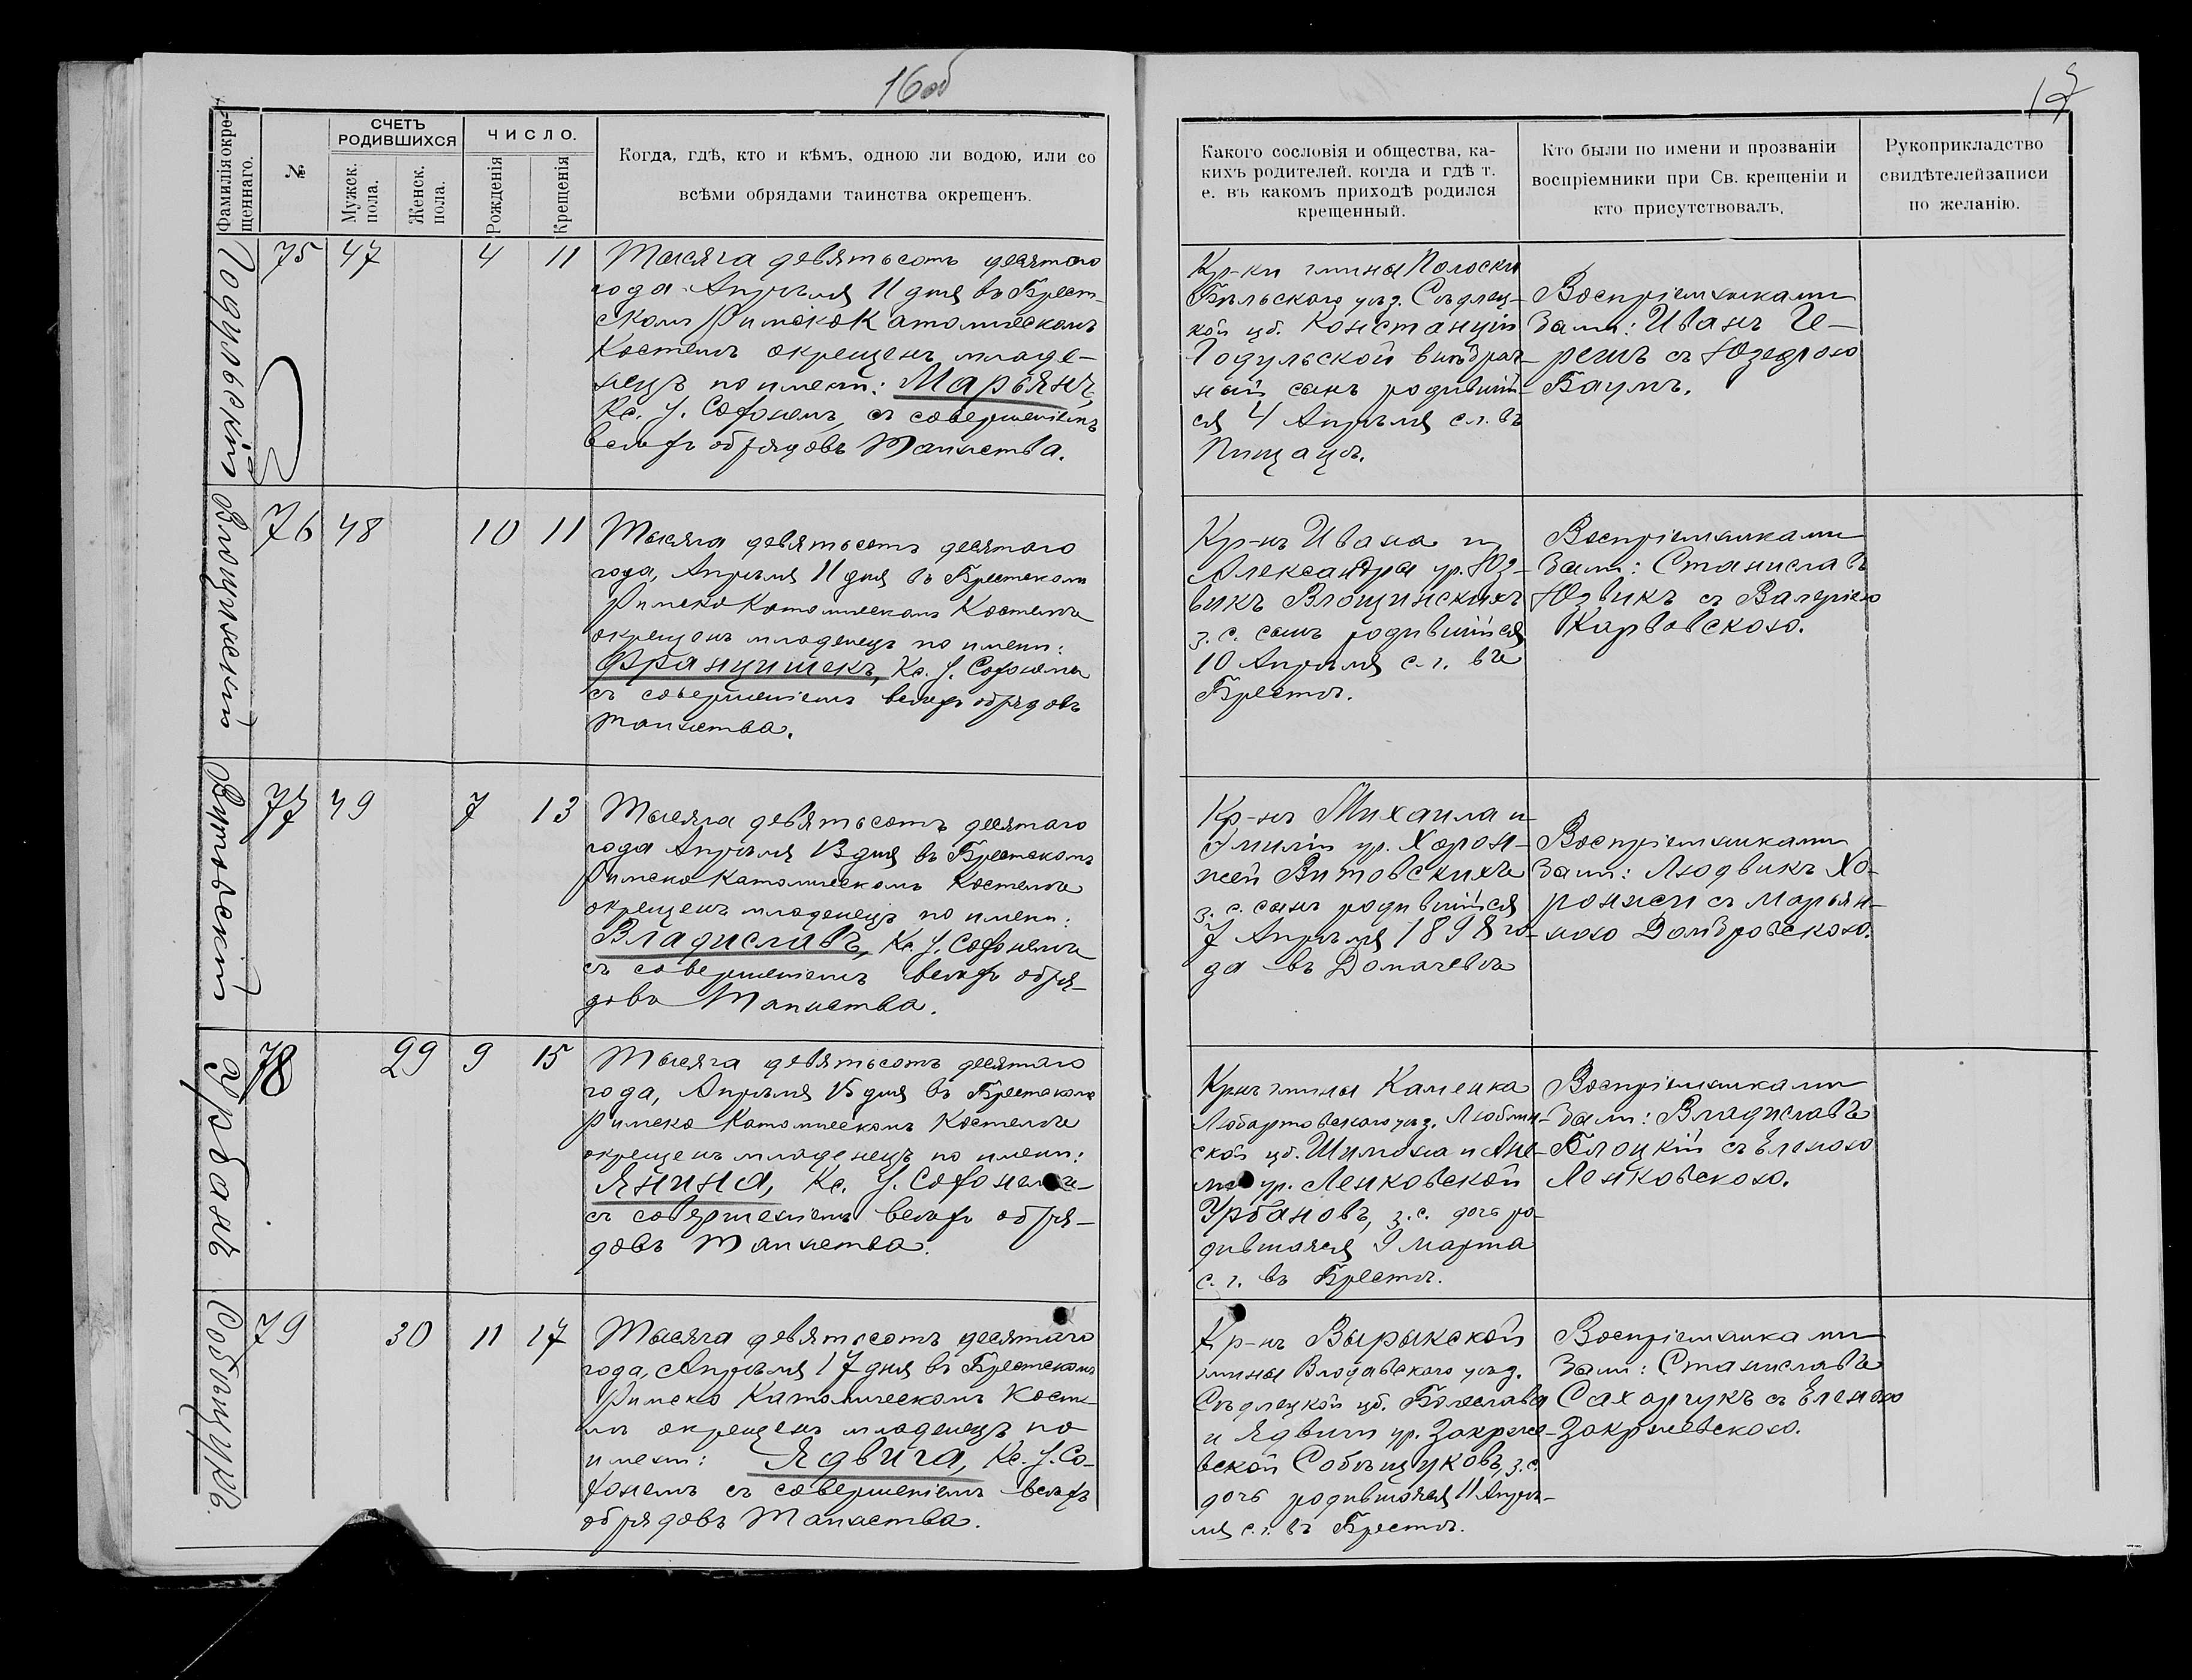 16об
17
Фамилія окре-
щеннаго.
№
СЧЕТЪ
РОДИВШИХСЯ
Мужск.
пола.
Женск.
пола.
ЧИСЛО.
Рожденія
Крещенія
Когда, гдѣ, кто и кѣмъ, одною ли водою, или со
всѣми обрядами таинства окрещенъ.
Какого сословія и общества, ка-
кихъ родителей. когда и гдѣ т.
е. въ какомъ приходѣ родился
крещенный.
Кто были по имени и прозваніи
воспріемники при Св. крещеніи и
кто присутствовалъ.
Рукоприкладство
свидѣтелей записи
по желанію.
Годульскій
75 47 4 11
Тысяча девятьсотъ десятаго
года Апрѣля 11 дня въ Брест-
скомъ Римско Католическомъ
Костелѣ окрещенъ младе-
нецъ по имени: Марьянъ,
Кс. І. Софонемъ, съ совершеніемъ
всѣхъ обрядовъ Таинства.
Кр-ки гмины Полоски
Бѣльского уѣзд. Сѣдлец-
кой губ. Констанціи
Годульской внѣбрач-
ный сынъ родившій-
ся 4 Апрѣля с.г. въ
Пищацѣ.
Воспріемниками
были: Иванъ Че-
решъ съ Юзефою
Баумъ.
Влощинскій
76 48 10 11
Тысяча девятьсотъ десятаго
года, Апрѣля 11 дня въ Брестскомъ
Римско Католическомъ Костелѣ
окрещенъ младенецъ по имени:
Францишекъ, Кс. І. Софонемъ
съ совершеніемъ всѣхъ обрядовъ
Таинства.
Кр-нъ Ивана и
Александры ур. Юз-
викъ Влощинскихъ
з. с. сынъ родившійся
10 Апрѣля с. г. въ
Брестѣ.
Воспріемниками
были: Станиславъ
Юзвикъ съ Валеріею
Карвовскою.
Витовскій
77 49 7 13
Тысяча девятьсотъ десятаго
года Апрѣля 13 дня въ Брестскомъ
Римско Католическомъ Костелѣ
окрещенъ младенецъ по имени:
Владиславъ, Кс. І. Софонемъ
съ совершеніемъ всѣхъ обря-
довъ Таинства.
Кр-нъ Михаила и
Эмиліи ур. Хорон-
жей Витовскихъ
з. с. сынъ родившійся
7 Апрѣля 1898 го-
да въ Домачевѣ
Воспріемниками
были: Людвикъ Хо-
ронжи съ Марьян-
ною Домбровскою.
Урбанъ
78 29 9 15
Тысяча девятьсотъ десятаго
года, Апрѣля 15 дня въ Брестскомъ
Римско Католическомъ Костелѣ
окрещенъ младенецъ по имени:
Янина, Кс. І. Софонемъ
съ совершеніемъ всѣхъ обря-
довъ Таинства.
Кр-нъ гмины Каменка
Любартовского уѣзд. Люблин-
ской губ. Шимона и Ане-
ли ур. Ленковской
Урбановъ, з. с. дочь ро-
дившаяся 9 марта
с. г. въ Брестѣ.
Воспріемниками
были: Владиславъ
Блоцкій съ Еленою
Ленковскою.
Собѣщукъ
79 30 11 17
Тысяча девятьсотъ десятаго
года, Апрѣля 17 дня въ Брестскомъ
Римско Католическомъ Косте-
лѣ окрещенъ младенецъ по
имени: Ядвига, Кс. І. Со-
фонемъ съ совершеніемъ всѣхъ
обрядовъ Таинства.
Кр-нъ Вырыкской
гмины Влодавского уѣзд.
Сѣдлецкой губ. Болеслава
и Ядвиги ур. Закрже-
вской Собѣщуковъ, з. с.
дочь родившаяся 11 Апрѣ-
ля с. г. въ Брестѣ.
Воспріемниками
были: Станиславъ
Сахарчукъ съ Еленою
Закржевскою.